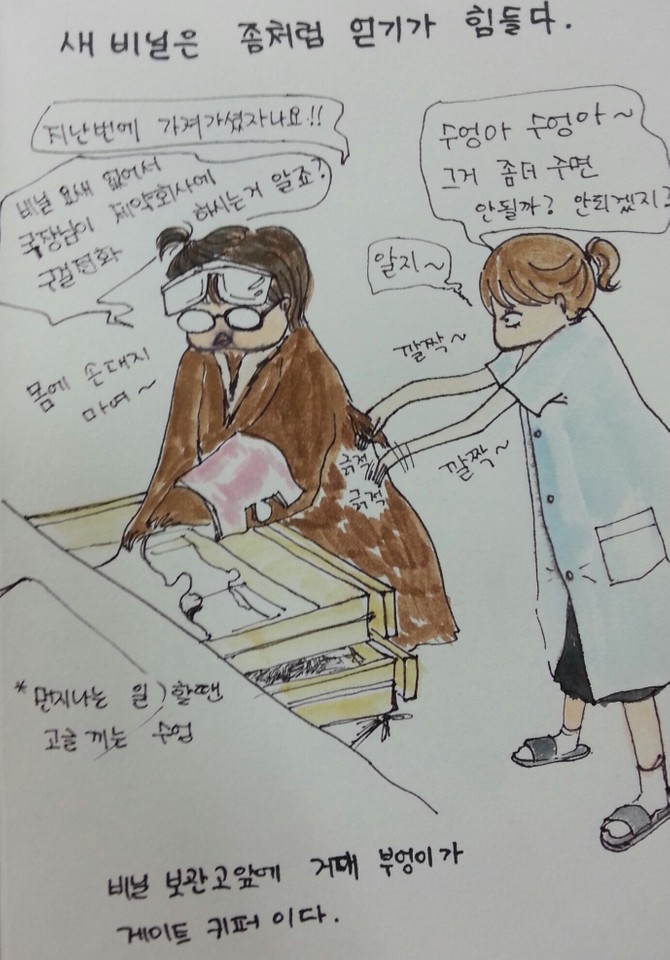 새 비닐은 좀처럼 얻기가 힘들다.
지난번에 가져가셨자나요!!
비닐 요새 없어서
국장님이 제약회사에
구걸전화 하시는거 알죠?
수엉아 수엉아~
그거 좀더 주면
안될까? 안되겠지?
알지~
몸에 손대지
마여~
깔짝~
깔짝~
긁적
긁적
* 먼지나는 일 할땐
고글 끼는 수엉
비닐 보관고앞에 거대 부엉이가
게이트 키퍼 이다.